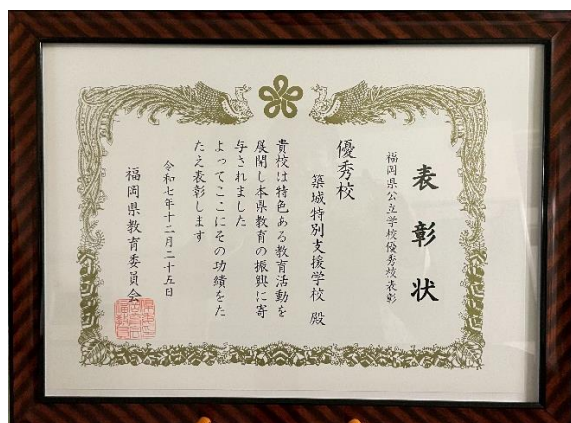 表彰状
福岡県公立学校優秀校表彰
優秀校
築城特別支援学校 殿
貴校は特色ある教育活動を
展開し本県教育の振興に寄
与されました
よってここにその功績をた
たえ表彰します
令和七年十二月二十五日
福岡県教育委員会